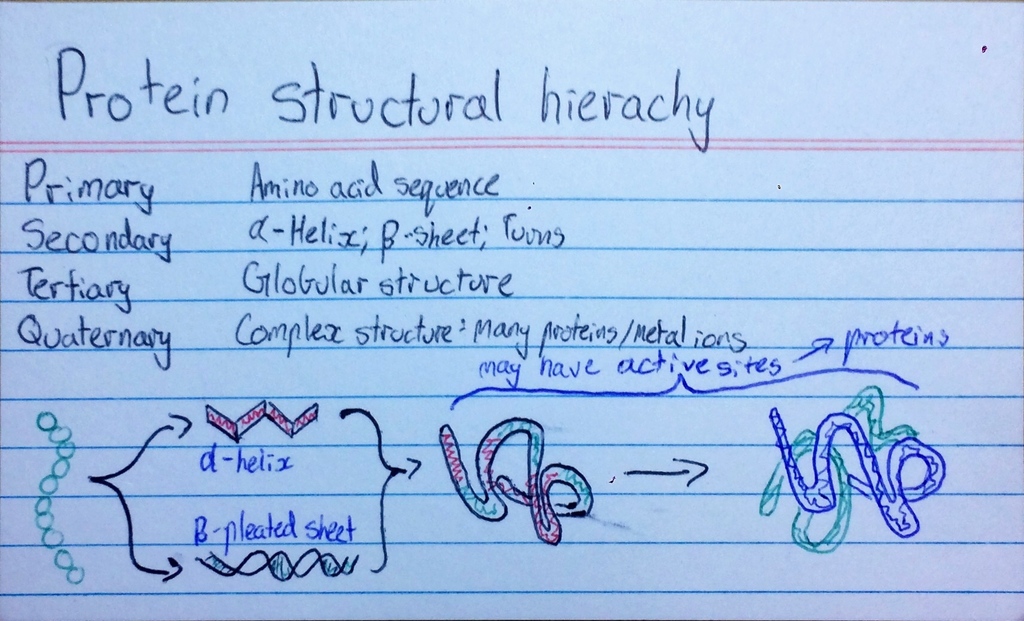 Protein structural hierachy
Primary Amino acid sequence
Secondary α-Helix; β-sheet; Turns
Tertiary Globular structure
Quaternary Complex structure: Many proteins/metal ions
may have active sites → proteins
α-helix
β-pleated sheet